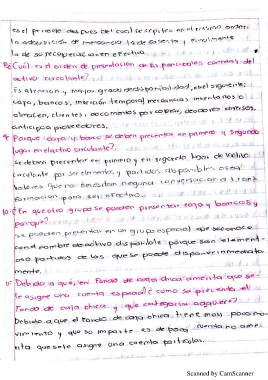 es el periodo despues del cual se repiten en el mismo orden
la adquisición de mercancia la de su venta y finalmente
la de su recuperación en efectivo
8- ¿Cual es el orden de presentación de las principales cuentas del
activo circulante?
Es atención y mayor grado de disponibilidad, es el siguiente:
caja, bancos, inversión temporal mercancias inventarios o
almacen, clientes, documentos por cobrar, deudores diversos,
anticipo proveedores.
9- Porque caja y banco se deben presentar en primero y segundo
lugar en el activo circulante?
Se deben presentar en primero y en segundo lugar de activo
circulante por ser elementos y partidas disponibles o sea
que no necesitan ninguna
para ser efectivo.
10- ¿En que otro grupo se pueden presentar caja y bancos y
porque?
Se pueden presentar en un grupo especial que se conoce
con el nombre de activo disponible porque son elementos
o partidas de los que se puede disponer inmediata
mente.
11- Debido a qué, el Fondo de caja chica amerita que se
le asigne una cuenta especial o como se presenta el
Fondo de caja chica y que categoria adquiere?
Debido a que el Fondo de caja chica tiene muy poco mo-
vimiento y que su importe es de poca cuenta no ame-
rita que se le asigne una cuenta particular.
Scanned by CamScanner